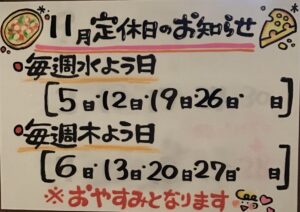 11月定休日のお知らせ
・毎週水よう日
[5日・12日・19日26日・　日]
・毎週木よう日
[6日・13日・20日27日・　日]
※おやすみとなります